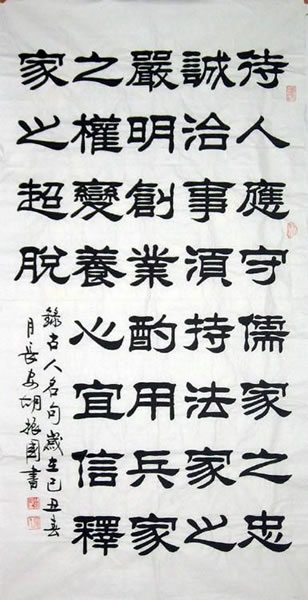 待人應守儒家之忠
誠治事須持法家之
嚴明創業酌用兵家
之權變養心宜信釋
家之超脫
錄古人名句歲在己丑春
月長安胡振國書